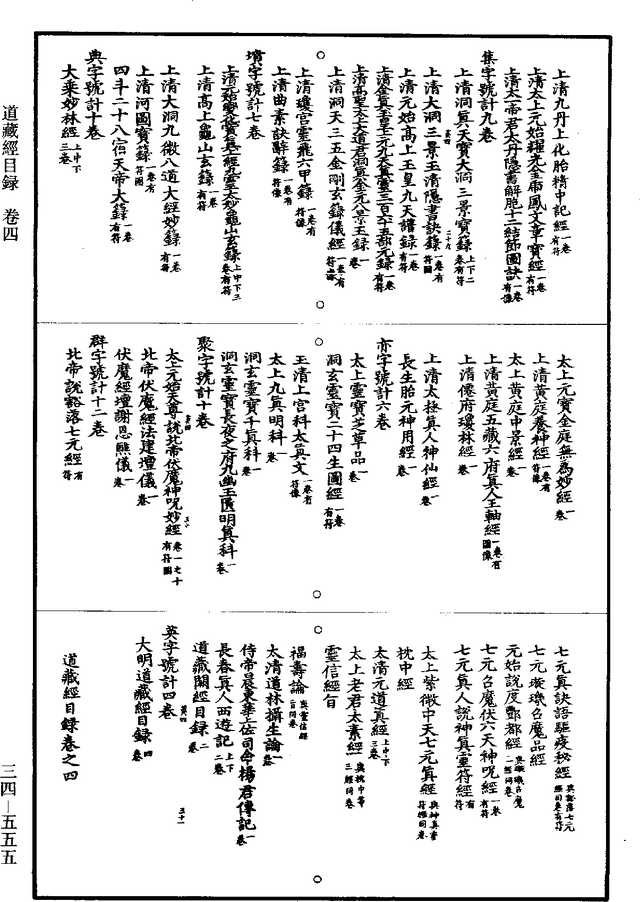 道藏經目録　卷四
上清九丹上化胎精中記經 一卷 有符
上清太上元始耀光金虎鳳文章寶經 一卷 有符
上清太一帝君太丹隱書解胞十二結節圖訣 一卷 有像
集字號計九卷
上清洞真天寶大洞三景寶籙 上下二卷有符
上清大洞三景玉清隱書訣籙 一卷有符圖
上清元始高上玉皇九天譜籙 一卷有符
上清金真玉皇上元九天真靈三百六十五部元錄 一卷
上清高聖太上大道君洞真金元八景玉錄 一卷
上清洞天三五金剛玄籙儀經 一卷有符
上清瓊宮靈飛六甲籙 一卷有符像
上清曲素訣辭籙 一卷有符像
墳字號計七卷
上清元始變化寶真上經九靈太妙龜山玄籙 上中下三卷有符
上清高上龜山玄籙 一卷有符
上清大洞九微八道大經妙籙 一卷有符
上清河圖寶籙 一卷有符圖
四斗二十八宿天帝大籙 一卷有符
典字號計十卷
大乘妙林經 上中下三卷
太上元寶金庭無為妙經 一卷
上清黃庭養神經 一卷有符像
太上黃庭中景經 一卷
上清黃庭五藏六府真人玉軸經 一卷有圖像
上清僊府瓊林經 一卷
上清太極真人神仙經 一卷
長生胎元神用經 一卷
亦字號計六卷
太上靈寶芝草品 一卷
洞玄靈寶二十四生圖經 一卷有符
玉清上宮科太真文 一卷有符像
太上九真明科 一卷
洞玄靈寶千真科 一卷
洞玄靈寶長夜之府九幽玉匱明真科 一卷
聚字號計十卷
太上元始天尊說北帝伏魔神呪妙經 卷一之十有符圖
北帝伏魔經法建壇儀 一卷
伏魔經壇謝恩醮儀 一卷
群字號計十二卷
北帝說豁落七元經 有符
七元真訣語驅疫秘經 與豁落七元經同卷有符
七元璇璣召魔品經
元始說度酆都經 與璇璣召魔二經同卷
七元召魔伏六天神呪經 一卷有符
七元真人說神真靈符經 有符
太上紫微中天七元真經 與神真靈符經同卷
枕中經
太清元道真經 上中下三卷
太上老君太素經 與枕中等三經同卷
靈信經旨
福壽論 與靈信經旨同卷
太清道林攝生論 一卷
侍帝晨東華上佐司命楊君傳記 一卷
長春真人西遊記 上下二卷
道藏闕經目録 二卷
英字號計四卷
大明道藏經目録 四卷
道藏經目録卷之四
三四—五五五